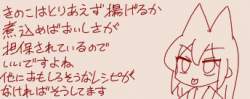 きのこはとりあえず揚げるか
煮込めばおいしさが
担保されているので
いいですよね
他におもしろそうなレシピが
なければそうしてます